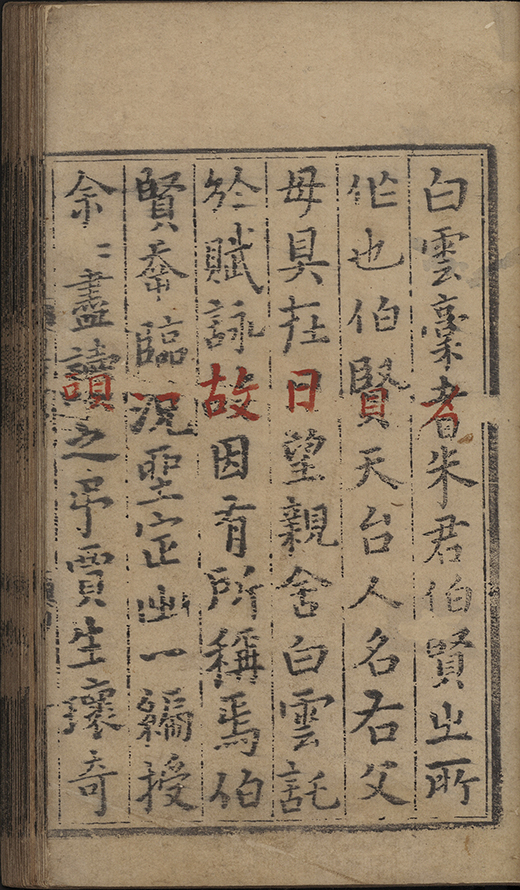 白雲稾者朱君伯賢之所
作也伯賢天台人名右父
母具在日望親舍白雲託
於賦詠故因有所稱焉伯
賢臨況坐定出一編授
余〻盡讀之弔賈生瓌奇